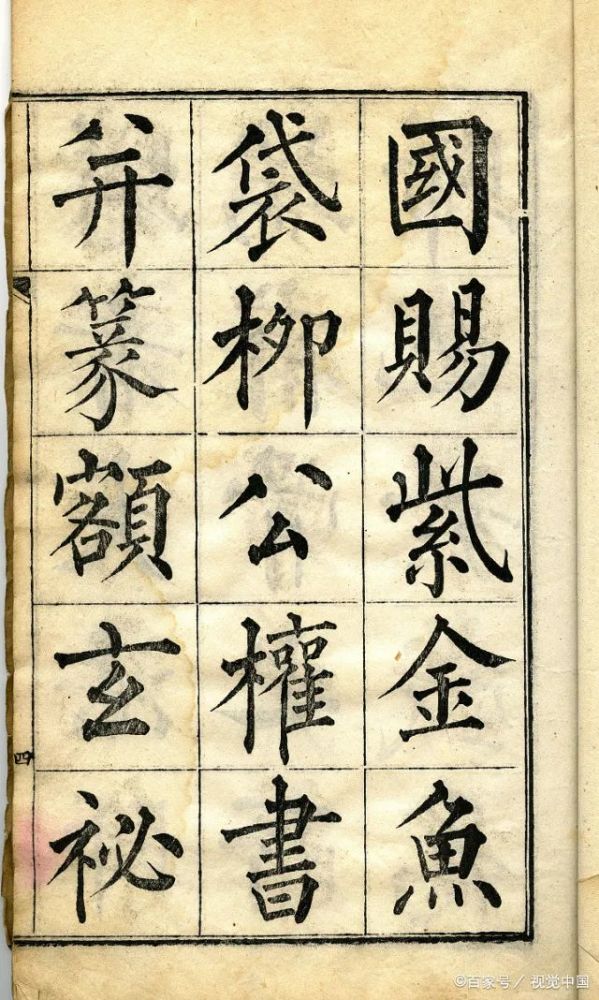 國賜紫金魚
袋柳公權書
并篆額玄秘
四
©百家号/视觉中国